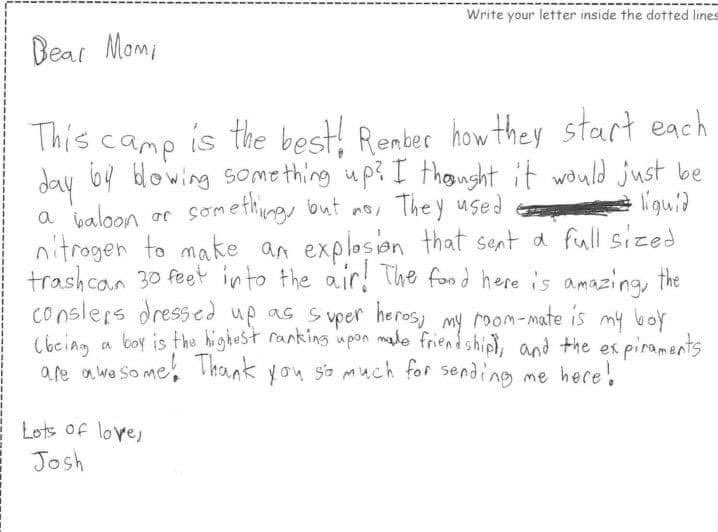 Write your letter inside the dotted lines
Dear Mom,
This camp is the best! Rember how they start each
day by blowing something up? I thought it would just be
a baloon or something, but no, They used liquid
nitrogen to make an explosion that sent a full sized
trashcan 30 feet into the air! The food here is amazing, the
conslers dressed up as super heros, my room-mate is my boy
(being a boy is the highest ranking upon male friendship), and the expiraments
are awesome! Thank you so much for sending me here!
Lots of love,
Josh